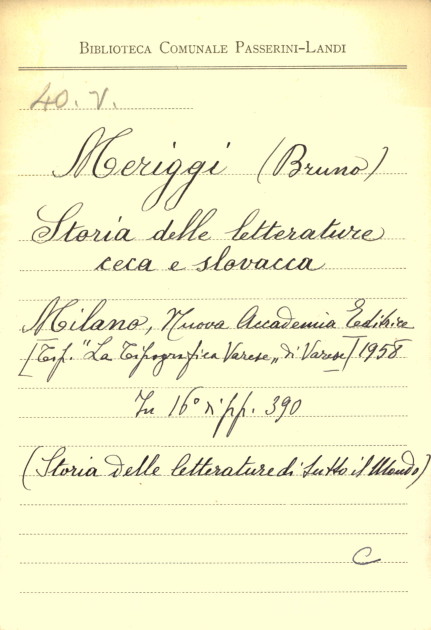 BIBLIOTECA COMUNALE PASSERINI-LANDI
40. V.
Meriggi (Bruno)
Storia delle letterature
ceca e slovacca
Milano, Nuova Accademia Editrice
[Tip. "La Tipografica Varese„ di Varese] 1958
In 16° di pp. 390
(Storia delle letterature di tutto il Mondo)
C